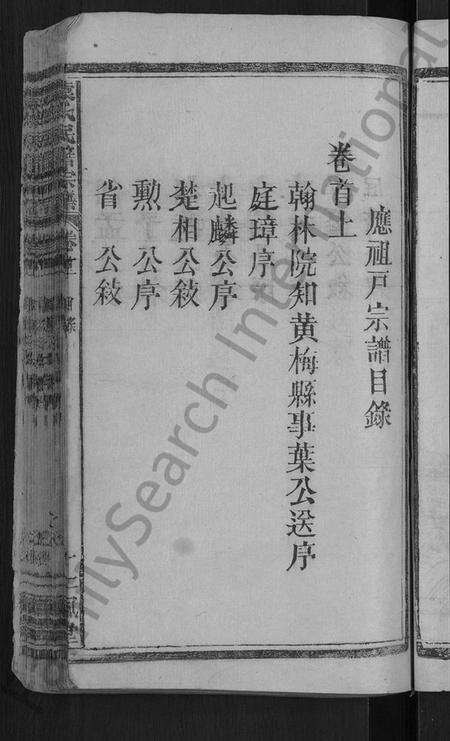 應祖戶宗譜目錄
卷首上
翰林院知黄梅縣事葉公送序
庭璋序
起麟公序
楚相公敍
勲公序
省公敍
FamilySearch International